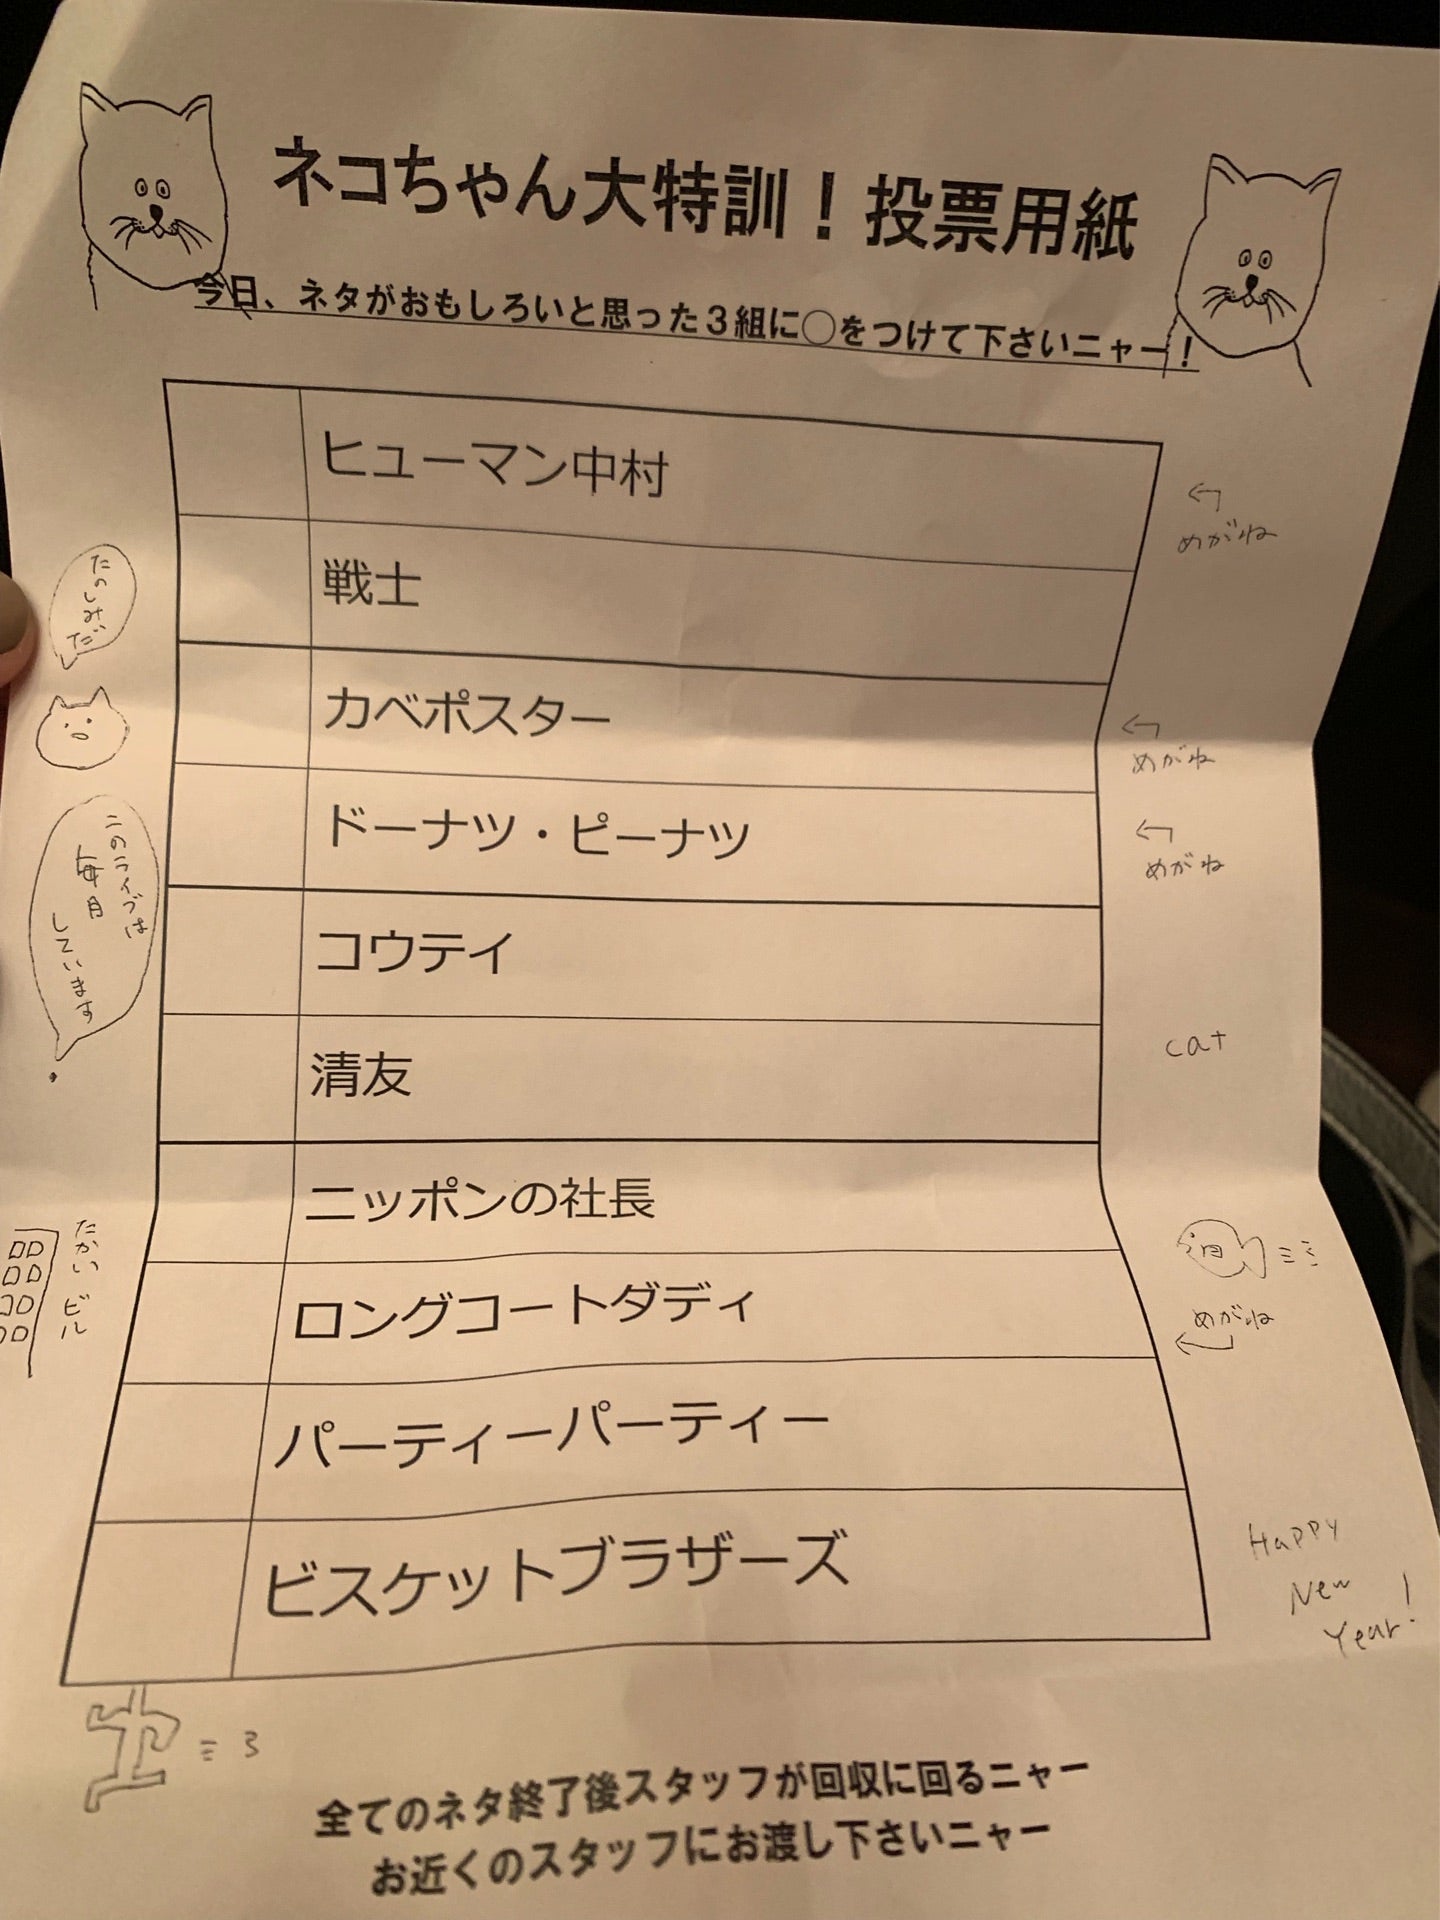 ネコちゃん大特訓！投票用紙
今日、ネタがおもしろいと思った３組に〇をつけて下さいニャー！
ヒューマン中村
←めがね
戦士
たのしみだい
カベポスター
←めがね
ドーナツ・ピーナツ
←めがね
このライブは
毎月
しています
コウテイ
清友
cat
ニッポンの社長
たかいビル
ロングコートダディ
めがね
←
パーティーパーティー
ビスケットブラザーズ
Happy
New
Year!
全てのネタ終了後スタッフが回収に回るニャー
お近くのスタッフにお渡し下さいニャー